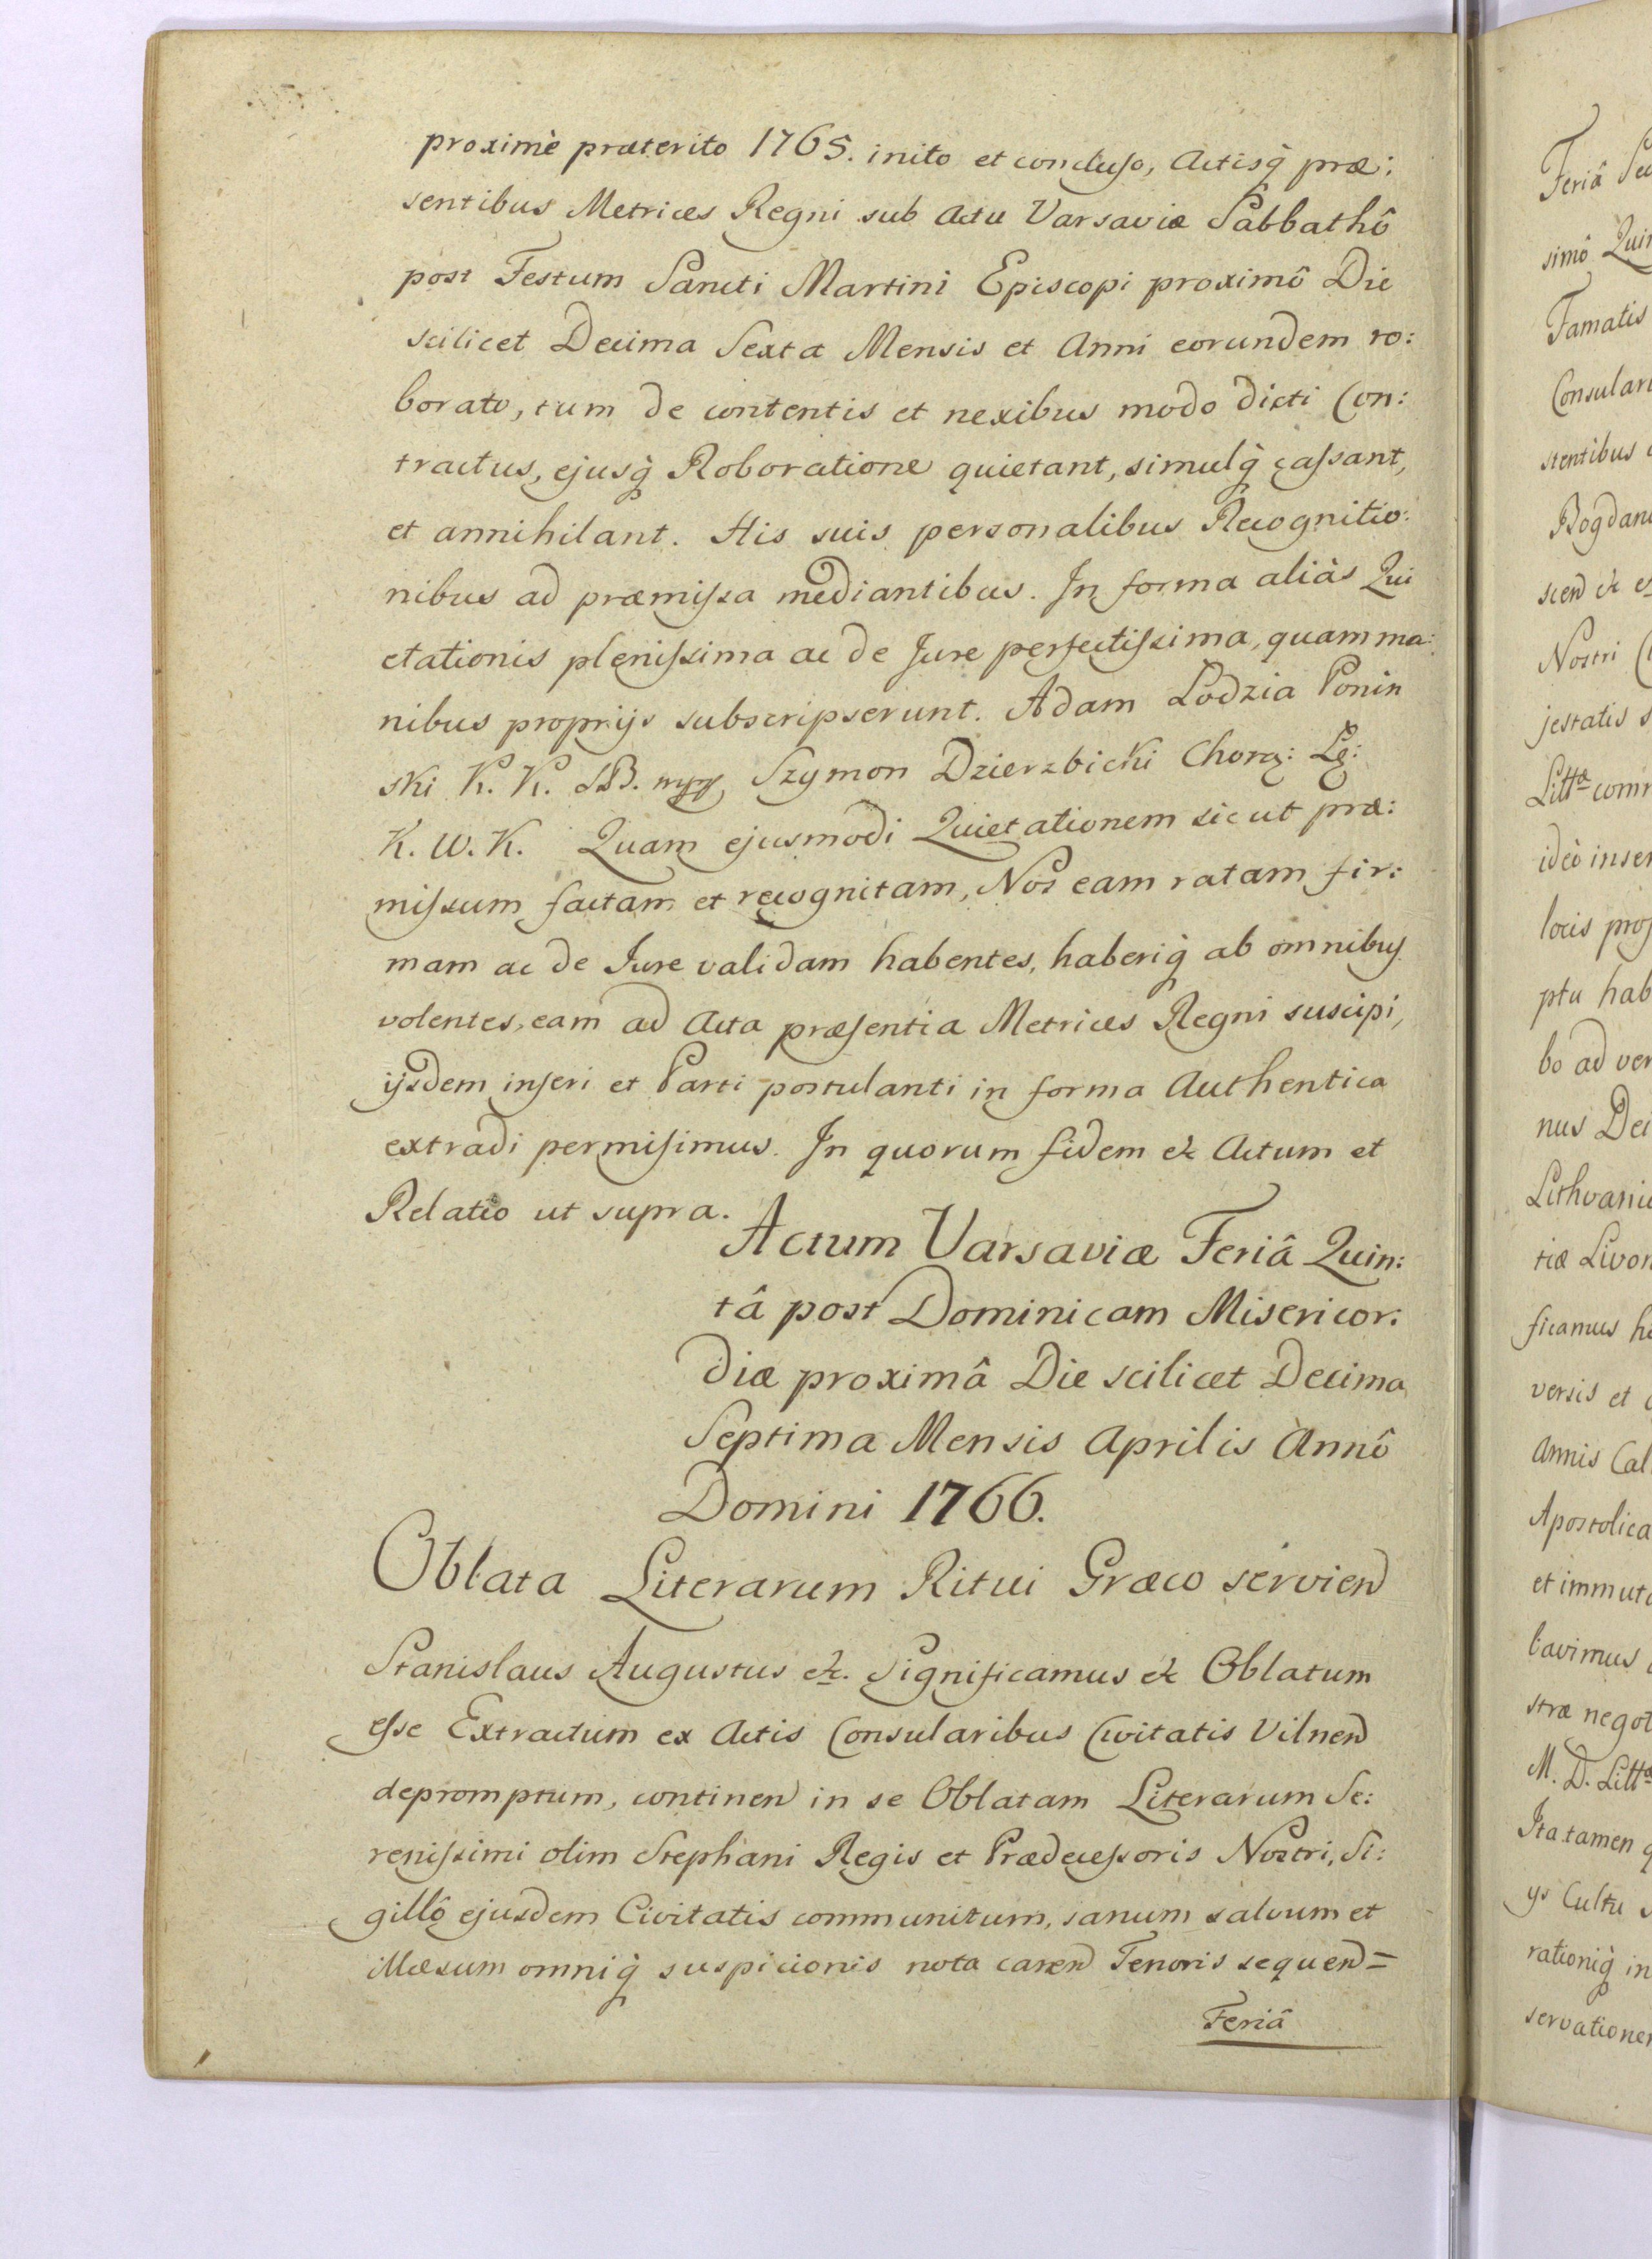 proximè præterito 1765. inito et concluso, Actisq̀ præ:
sentibus Metrices Regni sub Actu Varsaviæ Sabbathô
post Festum Sancti Martini Episcopi proximô Die
scilicet Decima Sexta Mensis et Anni eorundem ro:
borato, tum de contentis et nexibus modo dicti Con:
tractus, ejusq̀ Roboratione quietant, simulq̀ cassant,
et annihilant. His suis personalibus Recognitio:
nibus ad præmissa mediantibus. In forma aliàs Qui
etationis plenissima ac de Jure perfectissima, quam ma:
nibus proprijs subscripserunt. Adam Lodzia Ponin
ski K. K. Szymon Dzierzbicki Chorą: Łę:
K. W. K. Quam ejusmodi Quietationem sicut præ:
missum factam et recognitam, Nos eam ratam fir:
mam ac de Jure validam habentes, haberiq̀ ab omnibus
volentes, eam ad Acta præsentia Metrices Regni suscipi,
ijsdem inseri et Parti postulanti in forma Authentica
extradi permisimus. In quorum fidem &c Actum et
Relatio ut supra.
Actum Varsaviæ Feriâ Quin:
tâ post Dominicam Misericor:
diæ proximâ Die scilicet Decima
Septima Mensis Aprilis Annô
Domini 1766.
Oblata Literarum Ritui Græco servien
Stanislaus Augustus &c. Significamus &c Oblatum
esse Extractum ex Actis Consularibus Civitatis Vilnen
depromptum, continen in se Oblatam Literarum Se:
renissimi olim Stephani Regis et Prædecessoris Nostri, Si:
gillô ejusdem Civitatis communitum, sanum salvum et
illæsum omniq̀ suspicionis nota caren Tenoris sequen=
Feriâ
Feriâ
simô
Famatis
stentibus
Nostri
jestatis
Litt<sup>æ</sup>
ideò
locis
ptu
bo ad
nus
tiæ
ficamus
versis et
Annis
et
bavimus
stræ
M. D. Litt<sup>æ</sup>
Ita tamen
ys Cultu
rationiq̀ in